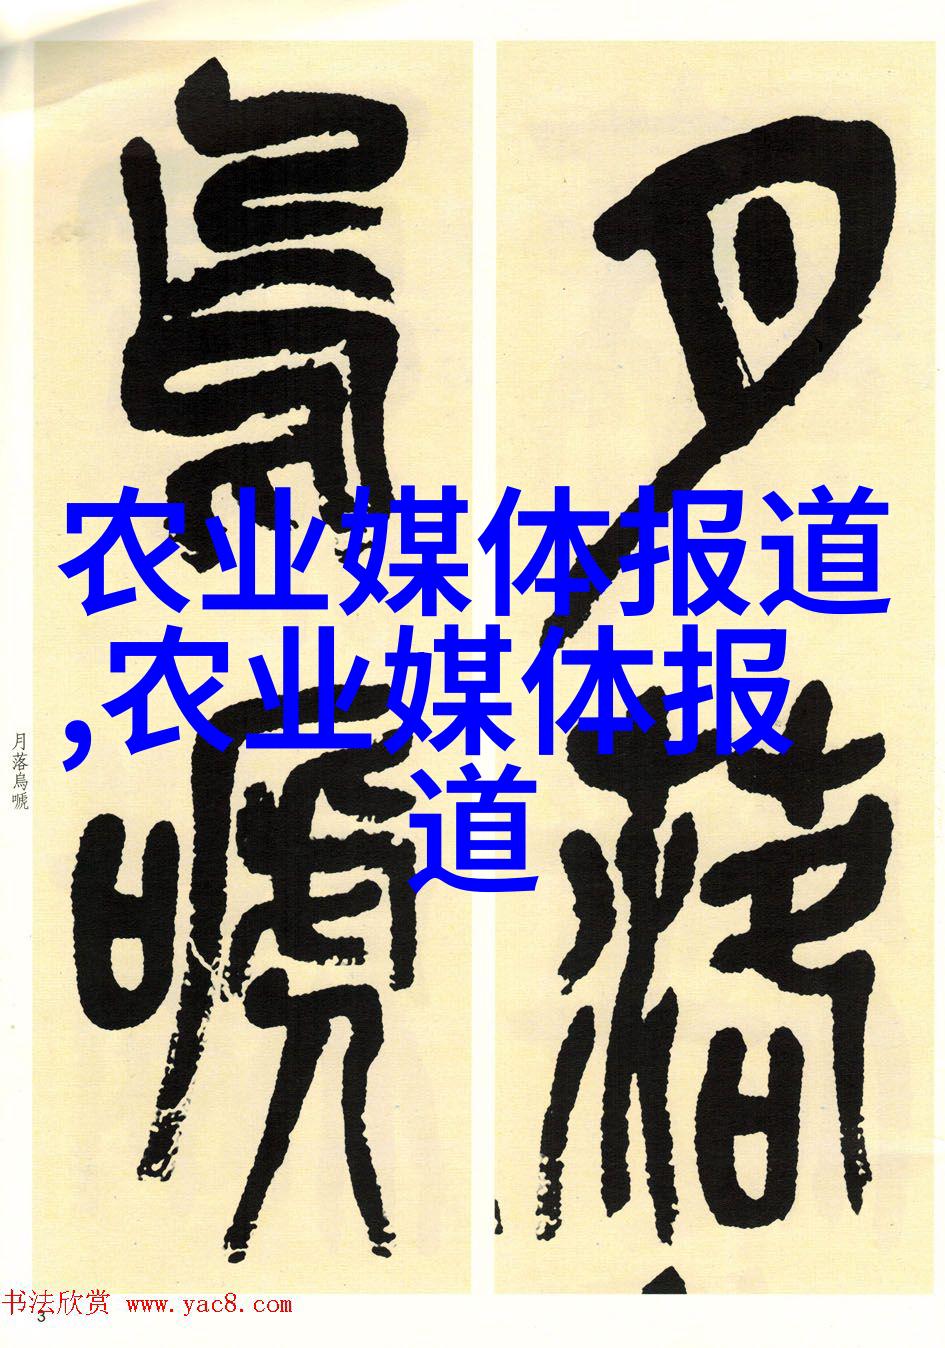 月落
烏嗁
农业媒体报道
,农业媒体报
道
月落烏嗁
书法欣赏 www.yac8.com
3